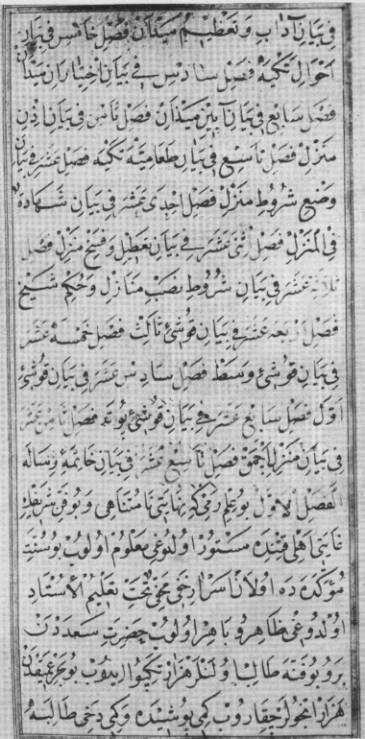 في بيان آداب وتعظيم ميدان فصل خامس في بيان
احوال تكيه فصل سادس في بيان اختياران ميدان
فصل سابع في بيان آيين ميدان فصل ثامن في بيان اذن
منزل فصل تاسع في بيان طعاميه تكيه فصل عشر في بيان
وضع شروط منزل فصل احدى عشر في بيان شهادة
في المنزل فصل اثنى عشر في بيان تعطل وفسخ منزل فصل
ثلاثة عشر في بيان شروط نصب منازل وحكم شيخ
فصل اربعه عشر في بيان قوشئ ثالث فصل خمسه عشر
في بيان قوشئ وسط فصل سادس عشر في بيان قوشئ
اول فصل سابع عشر في بيان قوشئ بوته فصل ثامن عشر
في بيان منزل اجمق فصل تاسع عشر في بيان خاتمهٔ رساله
الفصل الاول بو علم رمى كه نهايتى نامتناهى وبو فن شريفك
اهلى قتنده مستور اولنوغى معلوم اولوب بو سنت
مؤكده ده اولان اسرار خفى تحت تعليم الاستاد
اولدوغى ظاهر وباهر اولوب حضرت سعددن
برو بو فنه طالب اولنلر هزار تكاپو ايدوب بو بحر عميقدن
هزار انجولر چقاروب كمى پوشيده وكمى دخى طالبه